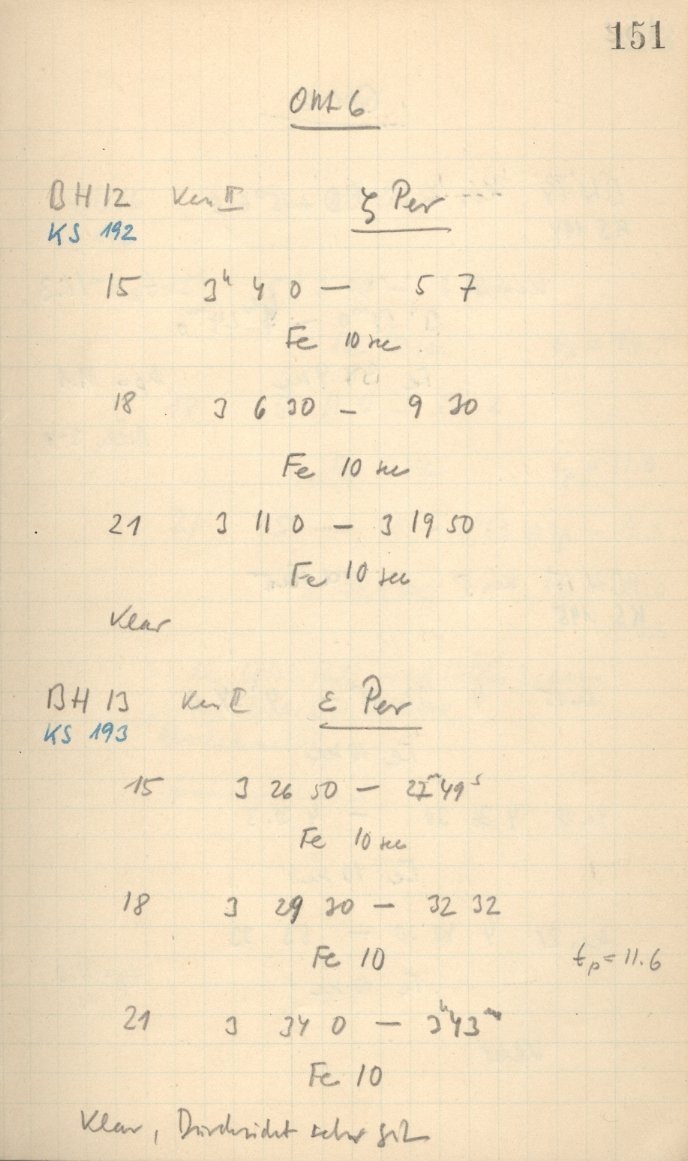 151
Okt 6
BH 12 Kam II ζ Per
KS 192
15 3h 4 0 — 5 7
Fe 10 sec
18 3 6 30 — 9 30
Fe 10 sec
21 3 11 0 — 3 19 50
Fe 10 sec
klar
BH 13 Kam II ε Per
KS 193
15 3 26 50 — 27m 49s
Fe 10 sec
18 3 29 30 — 32 32
Fe 10
tp = 11.6
21 3 34 0 — 3h 43m
Fe 10
klar, Durchsicht sehr gut